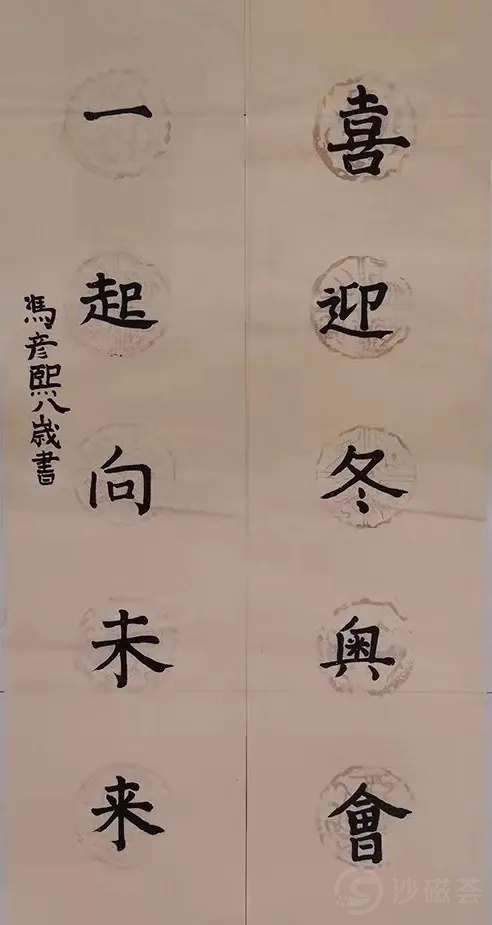 喜迎冬奥會
一起向未来
馮彦熙八歲書
沙磁荟